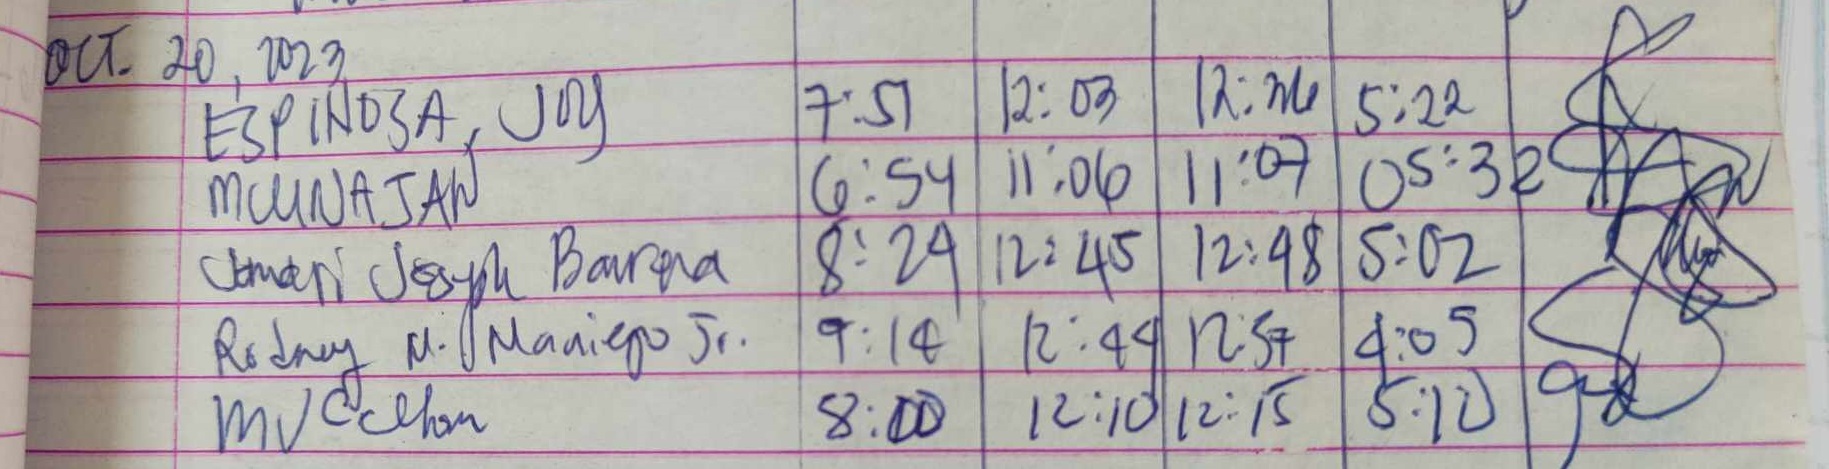 OCT. 20, 2023
ESPINOSA, JOY 7:51 12:03 12:36 5:22
6:54 11:06 11:07 05:32
Joseph 8:24 12:45 12:48 5:02
Rodney M. Maniego Jr. 9:14 12:44 12:57 4:05
MV 8:00 12:10 12:15 5:10